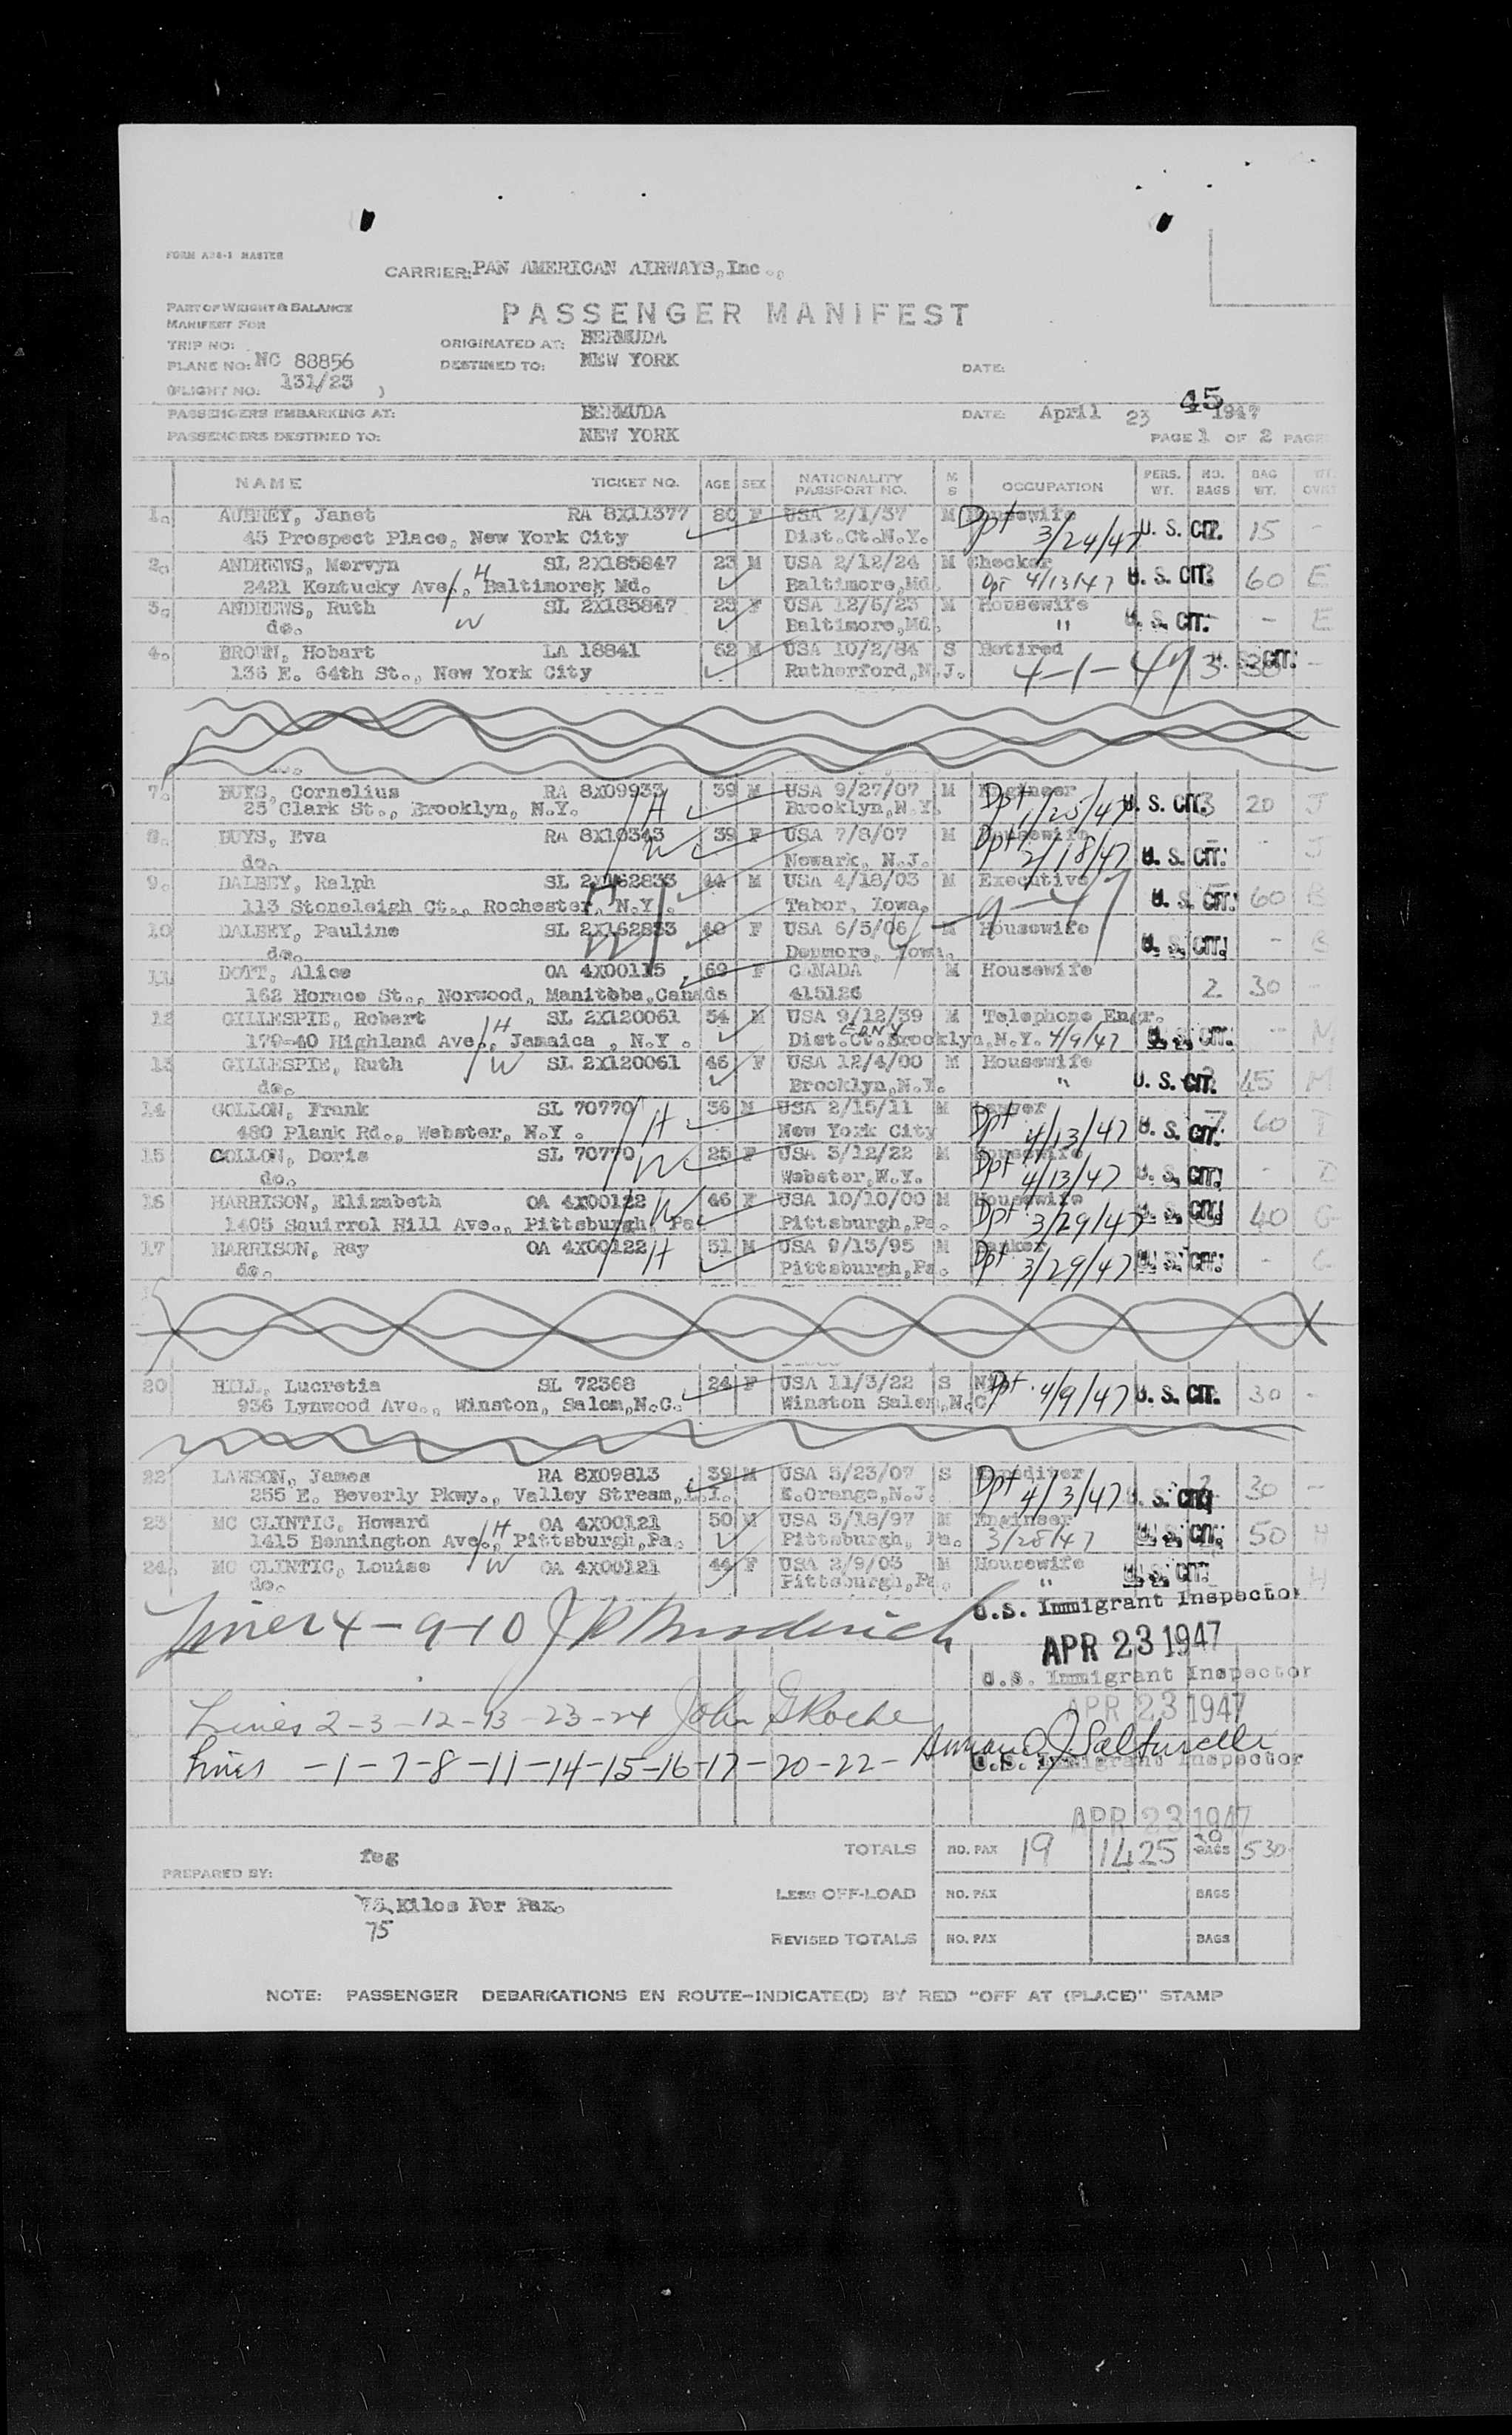 FORM
MASTER
CARRIER: PAN AMERICAN AIRWAYS, Inc.,
PART OF WEIGHT & BALANCE
PASSENGER MANIFEST
MANIFEST FOR
TRIP NO:
ORIGINATED AT: BERMUDA
PLANE NO: NC 88856
DESTINED TO: NEW YORK
DATE:
(FLIGHT NO: 131/23 )
45
PASSENGERS EMBARKING AT: BERMUDA DATE: April 23 1947
PASSENGERS DESTINED TO: NEW YORK PAGE 1 OF 2 PAGE
NAME TICKET NO. AGE SEX NATIONALITY PASSPORT NO. M S OCCUPATION PERS. WT. NO. BAGS BAG WT. WT.
1. AUBREY, Janet RA 8X11377 80 F USA 2/1/37 M Housewife Dpt 3/24/47 U. S. CIT. 15 -
45 Prospect Place, New York City Dist.Ct.N.Y.
2. ANDREWS, Mervyn SL 2X185847 23 M USA 2/12/24 M Checker U. S. CIT. 60 E
2421 Kentucky Ave., H Baltimorek Md. Baltimore,Md. Dpt 4/13/47
3. ANDREWS, Ruth SL 2X185847 23 F USA 12/6/23 M Housewife U. S. CIT. - E
do. W Baltimore,Md. "
4. BROWN, Hobart LA 18841 62 M USA 10/2/84 S Retired U. S. CIT.
136 E. 64th St., New York City Rutherford,N.J. 4-1-47 3 -
7. BUYS, Cornelius RA 8X09933 H 39 M USA 9/27/07 M Engineer Dpt 1/25/47 U. S. CIT. 3 20 J
25 Clark St., Brooklyn, N.Y. Brooklyn,N.Y.
8. BUYS, Eva RA 8X10343 W 39 F USA 7/8/07 M Housewife Dpt 2/18/47 U. S. CIT. - J
do. Newark, N.J.
9. DALBEY, Ralph SL 2X162833 44 M USA 4/18/03 M Executive U. S. CIT. 60 B
113 Stoneleigh Ct., Rochester, N.Y. H Tabor, Iowa.
10 DALBEY, Pauline SL 2X162833 40 F USA 6/5/06 M Housewife U. S. CIT. - B
do. W Iowa.
11 DOTT, Alice OA 4X00115 69 F CANADA M Housewife
162 Horace St., Norwood, Manitoba,Canada 415126 2 30 -
12 GILLESPIE, Robert H SL 2X120061 54 M USA 9/12/39 M Telephone Engr.
179-40 Highland Ave., Jamaica , N.Y . Dist.Ct. EDNY Brooklyn,N.Y. 4/9/47 U. S. CIT. - M
13 GILLESPIE, Ruth W SL 2X120061 46 F USA 12/4/00 M Housewife
do. Brooklyn,N.Y. " U. S. CIT. 45 M
14 GOLLON, Frank SL 70770 H 36 M USA 2/15/11 M Lawyer Dpt 4/13/47 U. S. CIT. 60
480 Plank Rd., Webster, N.Y . New York City
15 GOLLON, Doris SL 70770 W 25 F USA 3/12/22 M Housewife Dpt 4/13/47 U. S. CIT. - D
do. Webster,N.Y.
16 HARRISON, Elizabeth OA 4X00122 W 46 F USA 10/10/00 M Housewife Dpt 3/29/47 U. S. CIT. 40 G
1405 Squirrel Hill Ave., Pittsburgh, Pa. Pittsburgh,Pa.
17 HARRISON, Ray OA 4X00122 H 51 M USA 9/15/95 M Banker Dpt 3/29/47 U. S. CIT. - G
do. Pittsburgh,Pa.
20 HILL, Lucretia SL 72368 24 F USA 11/3/22 S Nil Dpt 4/9/47 U. S. CIT. 30 -
936 Lynwood Ave., Winston, Salem,N.C. Winston Salem,N.C.
22 LAWSON, James RA 8X09813 39 M USA 5/23/07 S Expediter Dpt 4/3/47 U. S. CIT. 2 30 -
255 E. Beverly Pkwy., Valley Stream, L.I. E.Orange,N.J.
23 MC CLINTIC, Howard H OA 4X00121 50 M USA 3/18/97 M Engineer
1415 Bennington Ave., Pittsburgh,Pa. Pittsburgh, Pa. 3/28/47 U. S. CIT. 50 H
24. MC CLINTIC, Louise W OA 4X00121 44 F USA 2/9/03 M Housewife U. S. CIT. H
do. Pittsburgh,Pa. "
U.S. Immigrant Inspector
Lines 4-9-10
APR 23 1947
U.S. Immigrant Inspector
APR 23 1947
Lines 2-3-12-13-23-24 John G Roche
Lines -1-7-8-11-14-15-16-17-20-22-
U.S. Immigrant Inspector
APR 23 1947
TOTALS NO. PAX 19 1425 BAGS 530
feg
PREPARED BY:
LESS OFF-LOAD NO. PAX BAGS
Kilos Per Pax.
75
REVISED TOTALS NO. PAX BAGS
NOTE: PASSENGER DEBARKATIONS EN ROUTE-INDICATE(D) BY RED "OFF AT (PLACE)" STAMP